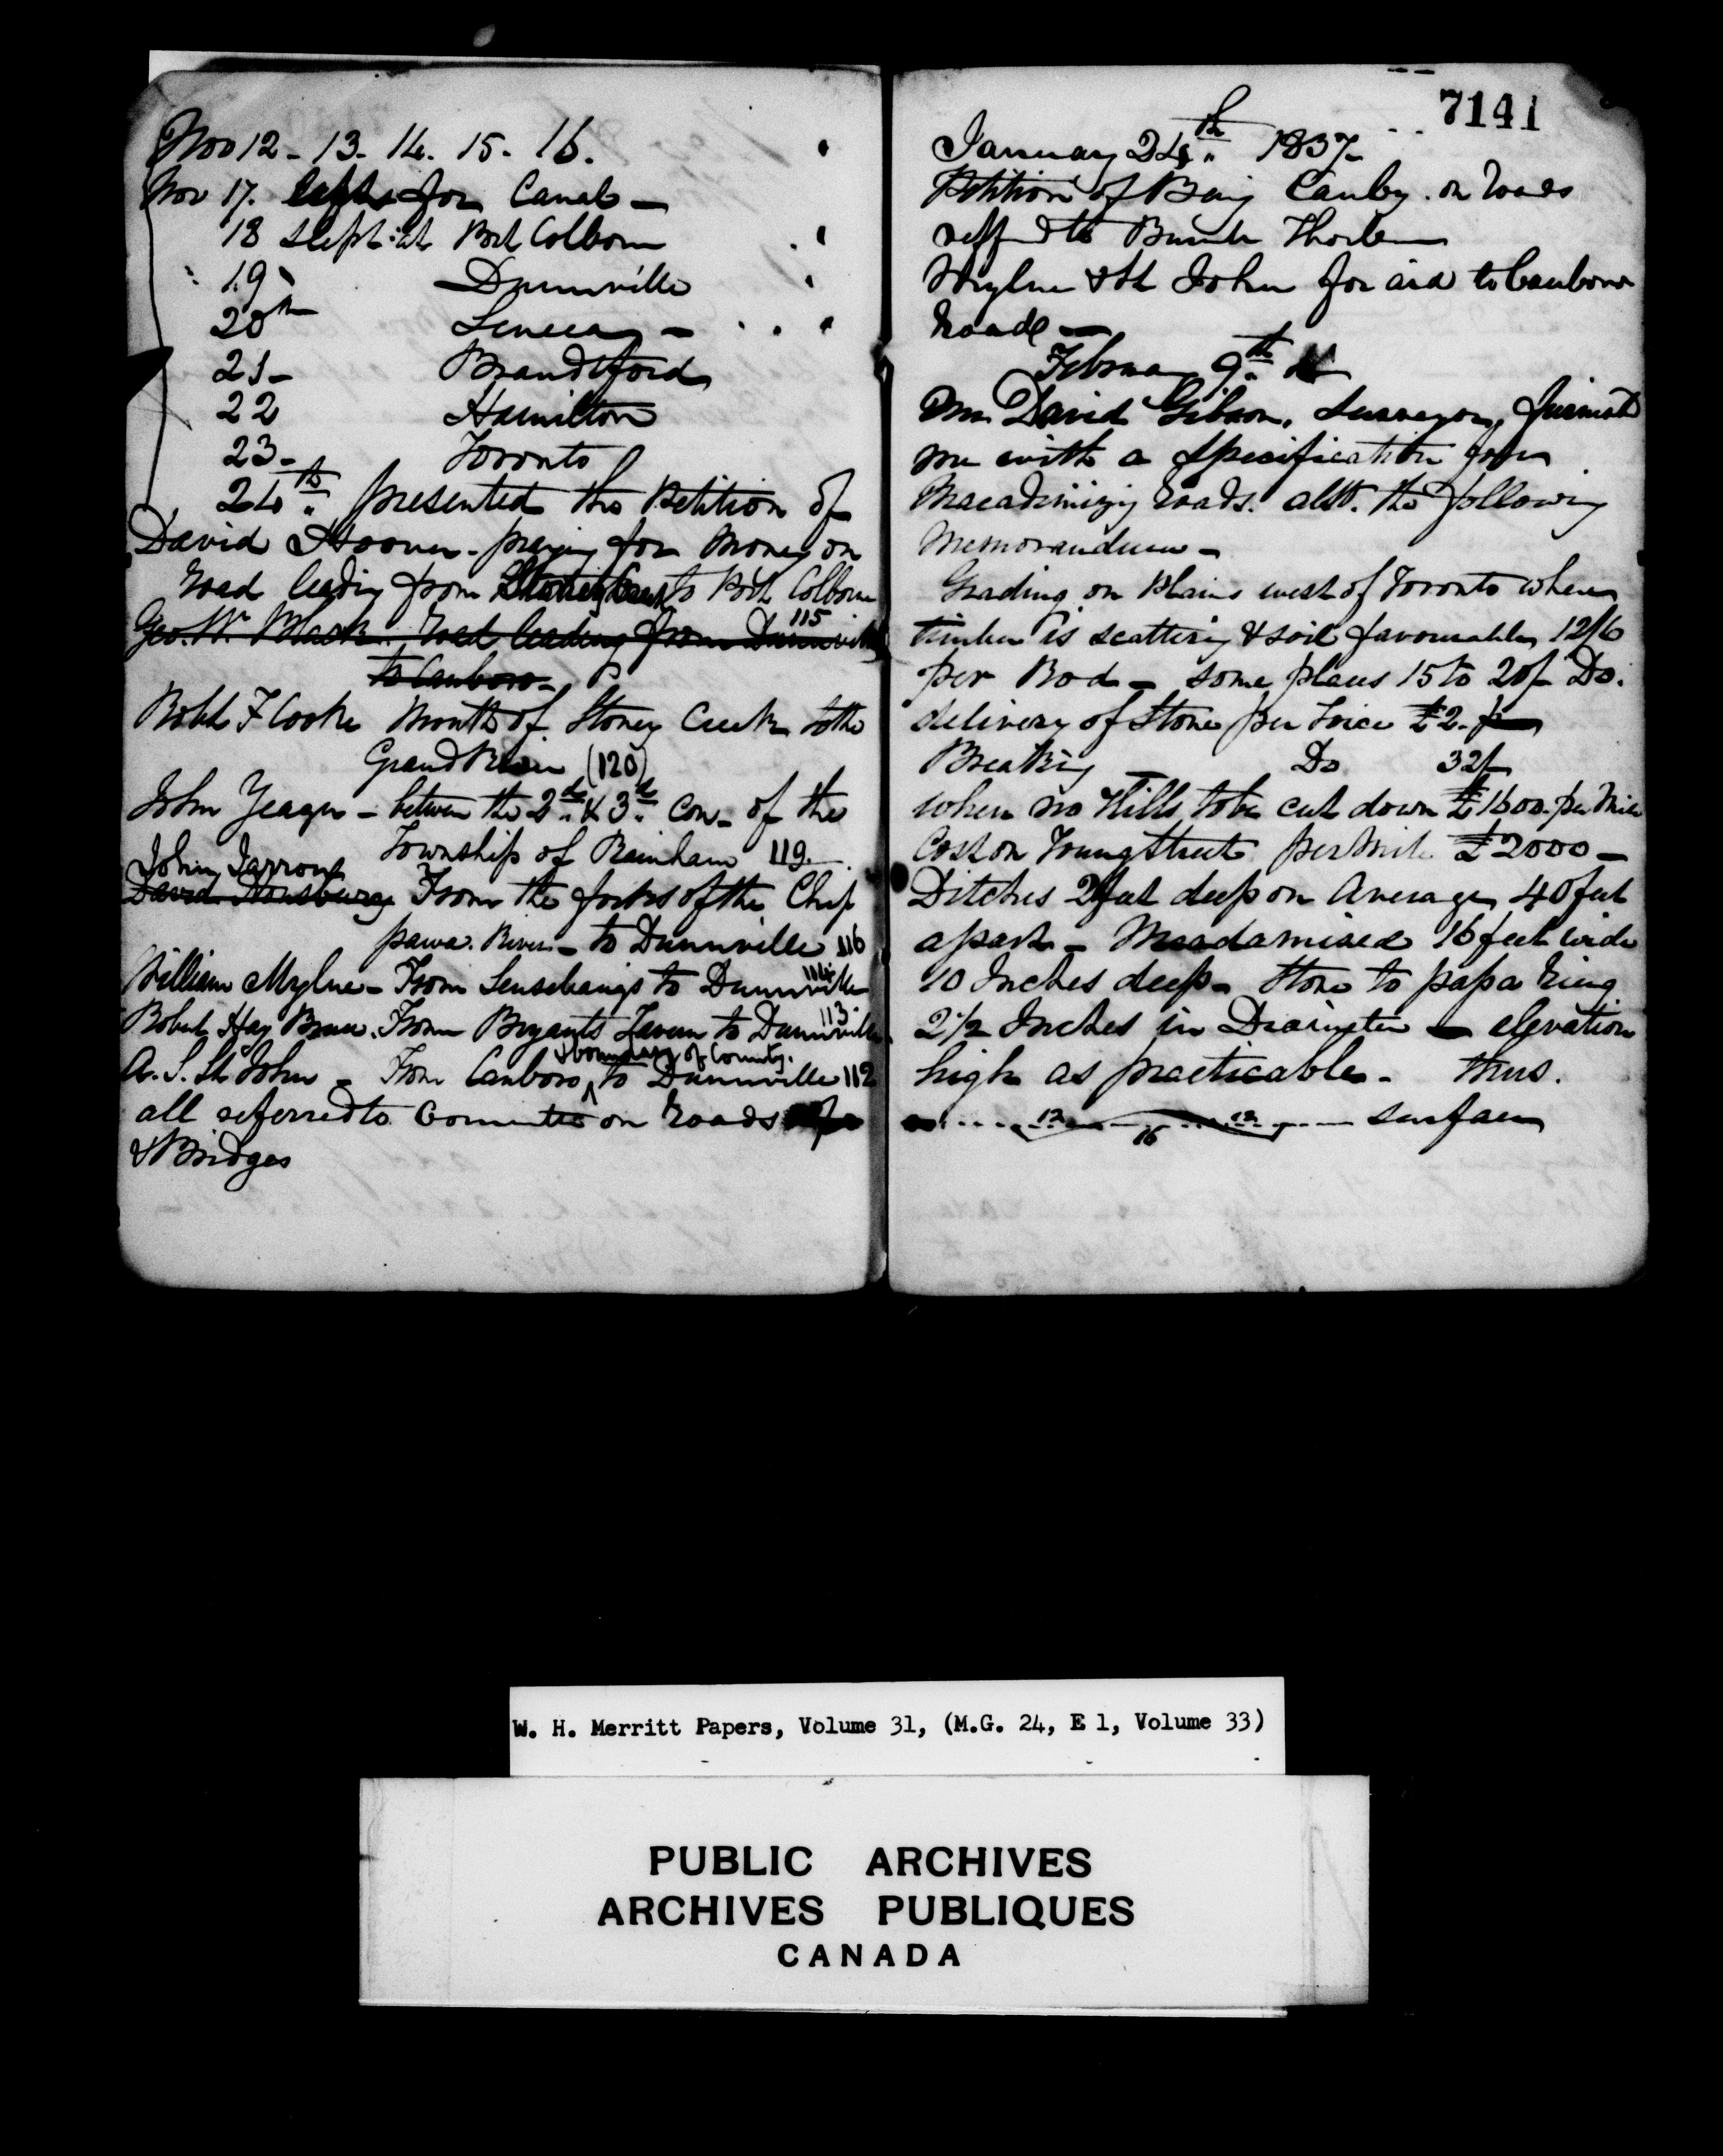 Nov 12 - 13. 14. 15. 16.
Nov 17. left for Canal -
18 slept at Port Colborn
19 Dunnville
20th Seneca -
21 - Brandtford
22 Hamilton
23 - Toronto
24th presented the Petition of
David Hoover - praying for Money on
road leading from to Port Colborn
115
Geo. W. Black. road leading from Dunnville
to Canboro -
Robt F Cooke Mouth of Stoney Creek to the
Grand River (120)
John Yeager - between the 2d & 3d Con - of the
Township of Rainham 119 -
John Jarron
David From the forks of the Chip
pawa River - to Dunnville 116
William Mylne - From to Dunnville 114
Robert Hay From Bryants Tavern to Dunnville 113
& boundary of County.
A. S. St John - From Canboro ^ to Dunnville 112
all referred to Committee on roads
& Bridges
7141
January 24th 1837
Petition of Benj Canby on roads
reffd to
Mylne & St John for aid to Canboro
Roads -
February 9th
Mr David Gibson, Surveyor, furnishd
me with a Specification for
Macadimizing roads. also. the following
Memorandum -
Grading on Plains west of Toronto where
timber is scattering & soil favourable 12/6
per Rod - some places 15 to 20/- Do.
delivery of Stone per Toice £2.
Breaking Do 32/-
when no Hills to be cut down £1600. per Mile
Cost on Young Street per Mile £2000 -
Ditches 2 feet deep on Average 40 feet
apart - Macadamised 16 feet wide
10 Inches deep - Stone to pass a ring
2 1/2 Inches in Diameter - elevation
high as practicable - thus.
12 16 12 surface
W. H. Merritt Papers, Volume 31, (M.G. 24, E 1, Volume 33)
PUBLIC ARCHIVES
ARCHIVES PUBLIQUES
CANADA